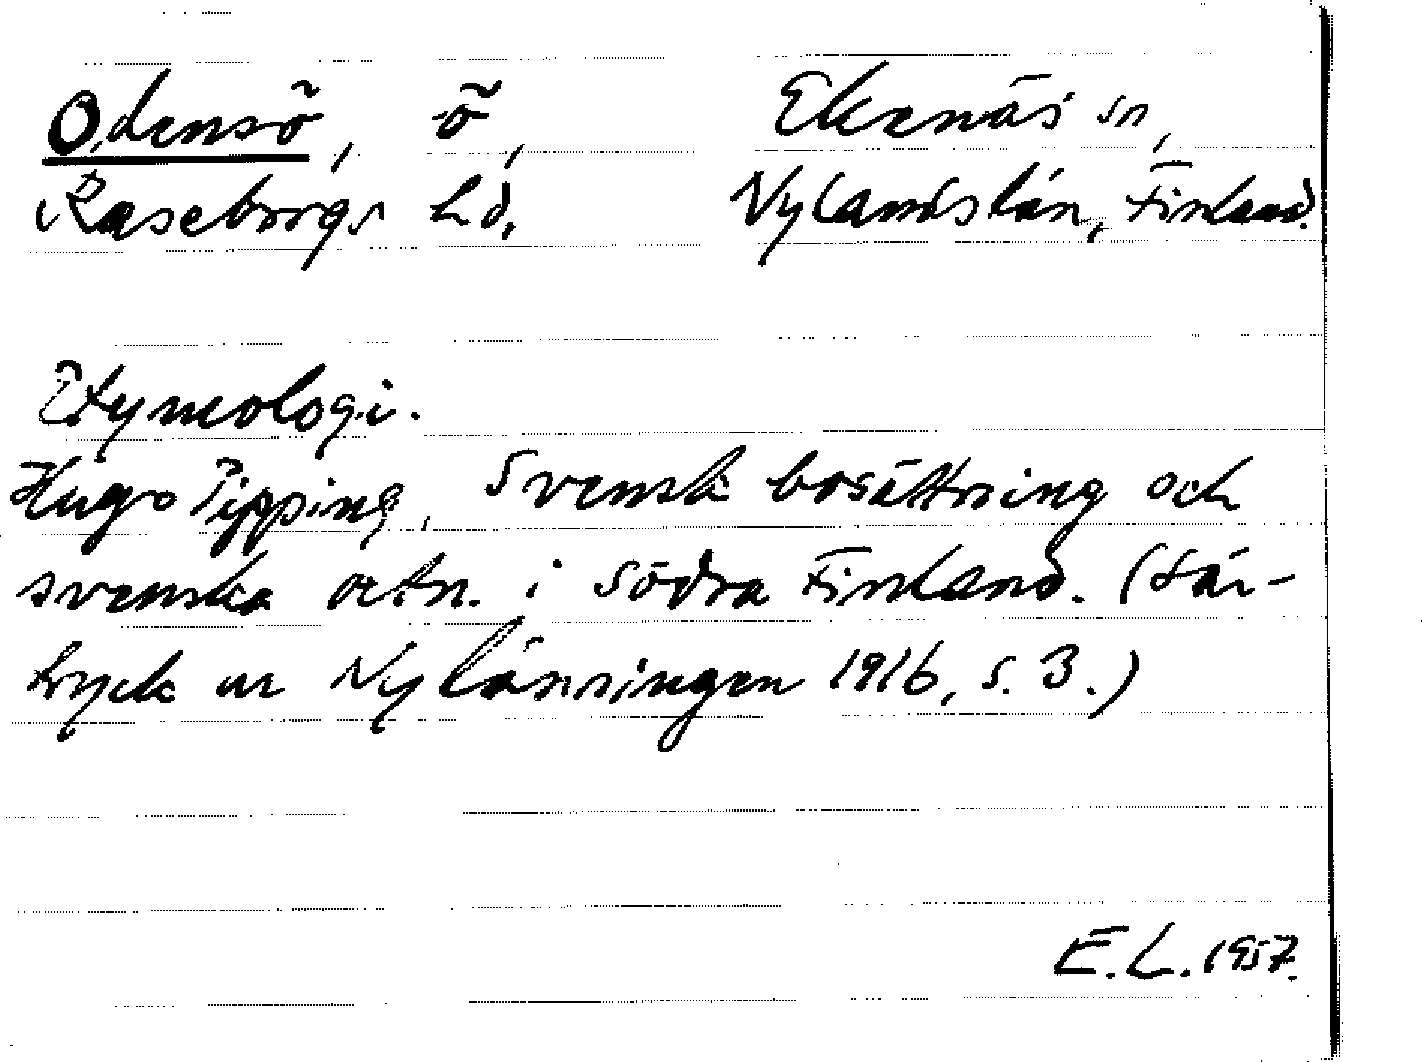 Odensö, ö, Ekenäs sn,
Raseborgs hd, Nylandslän, Finland.
Etymologi.
Hugo Pipping, Svensk bosättning och
svenska ortn. i södra Finland. (Sär-
tryck ur Nylänningen 1916, s. 3.)
E.L. 1957.